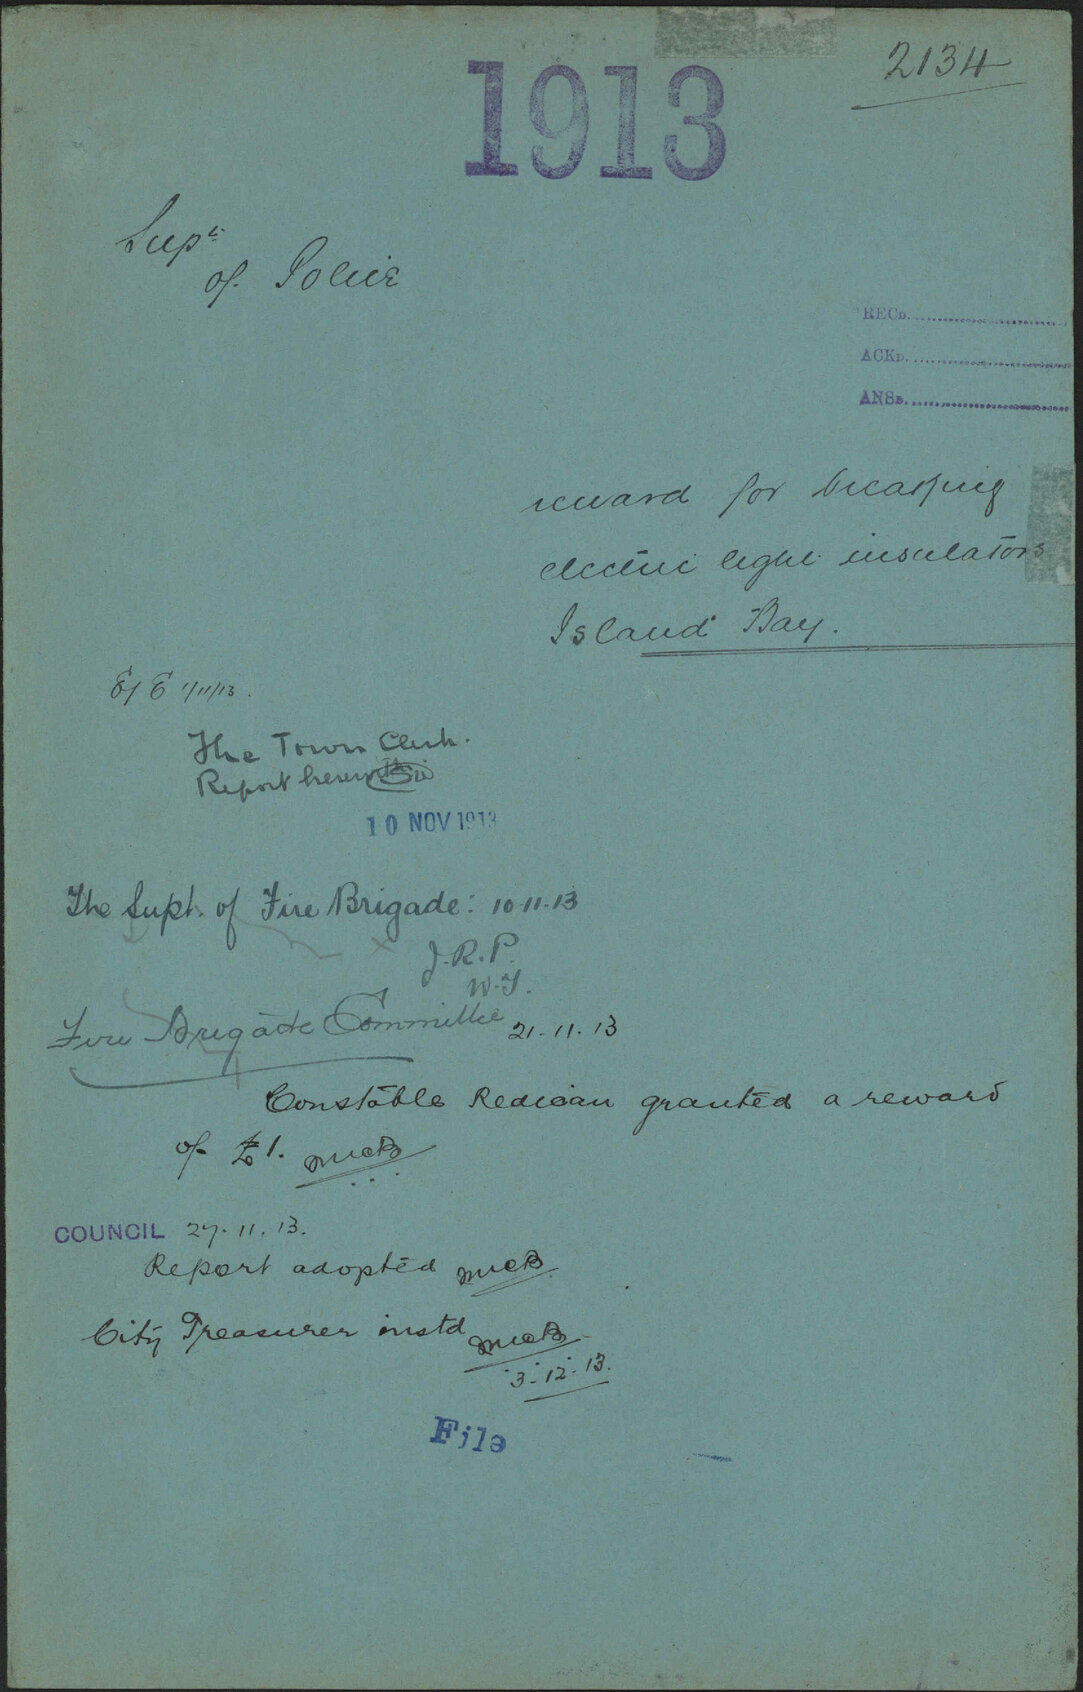 2134
1913
Supt.
of Police
RECD.
ACKD.
ANSD.
reward for breaking
electric light insulators
Island Bay.
E/E 1/11/13.
The Town Clerk.
Report herewith
10 NOV 1913
The Supt. of Fire Brigade: 10.11.13
J.R.P.
Fire Brigade Committee 21.11.13
Constable Redican granted a reward
of £1.
COUNCIL 27.11.13.
Report adopted
City Treasurer instd
3.12.13.
File